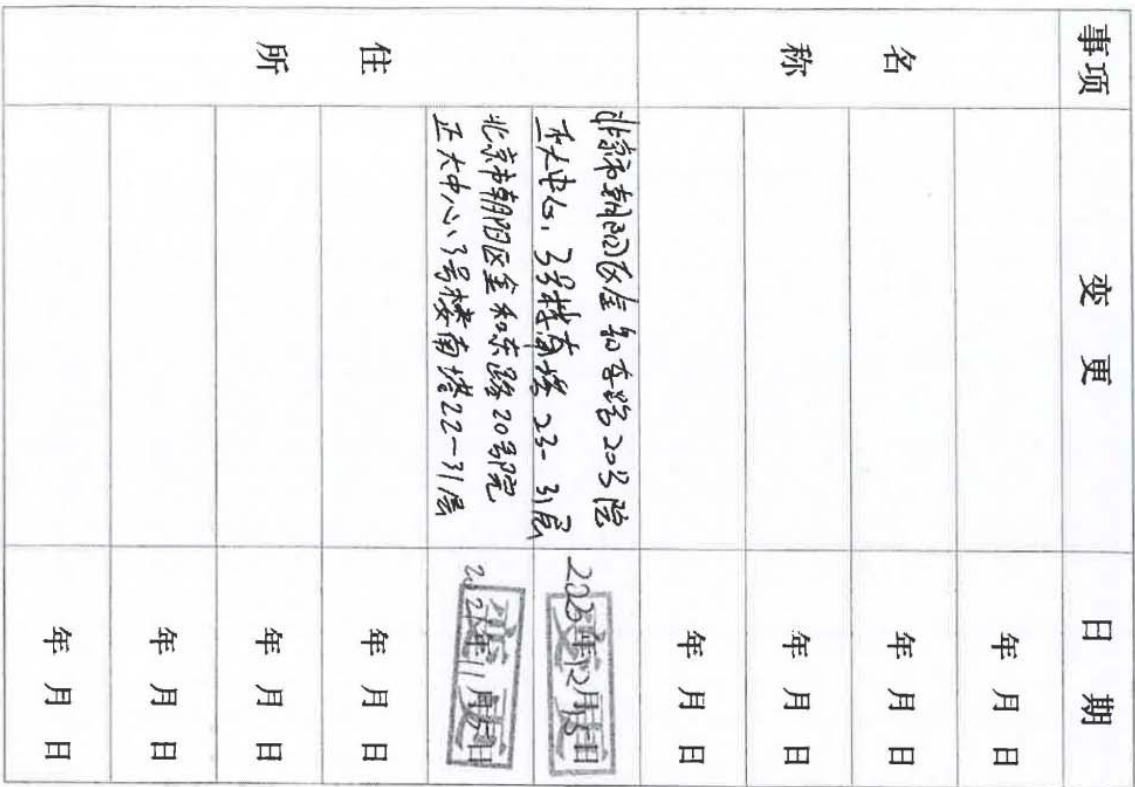 事项 变更 日期
名称
年 月 日
年 月 日
年 月 日
年 月 日
住所
北京市朝阳区金和东路20号院
正大中心3号楼南塔23-31层
2023年12月5日
北京市朝阳区金和东路20号院
正大中心3号楼南塔22-31层
年11月 日
年 月 日
年 月 日
年 月 日
年 月 日